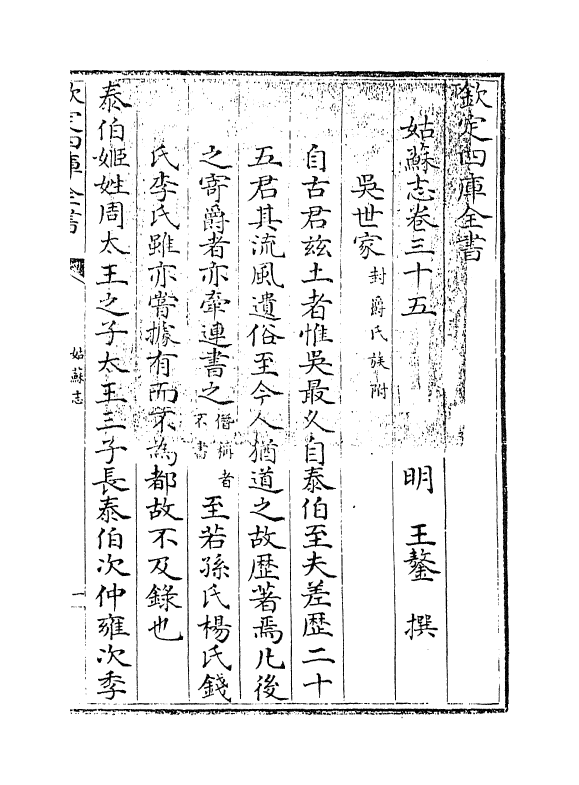 欽定四庫全書
姑蘇志卷三十五
明 王鏊 撰
吳世家封爵氏族附
自古君玆土者惟吳最久自泰伯至夫差歴二十
五君其流風遺俗至今人猶道之故歴著焉凡後
之寄爵者亦牽連書之僭稱者不書至若孫氏楊氏錢
氏李氏雖亦嘗據有而不為都故不及錄也
泰伯姬姓周太王之子太王三子長泰伯次仲雍次季
欽定四庫全書
姑蘇志
一